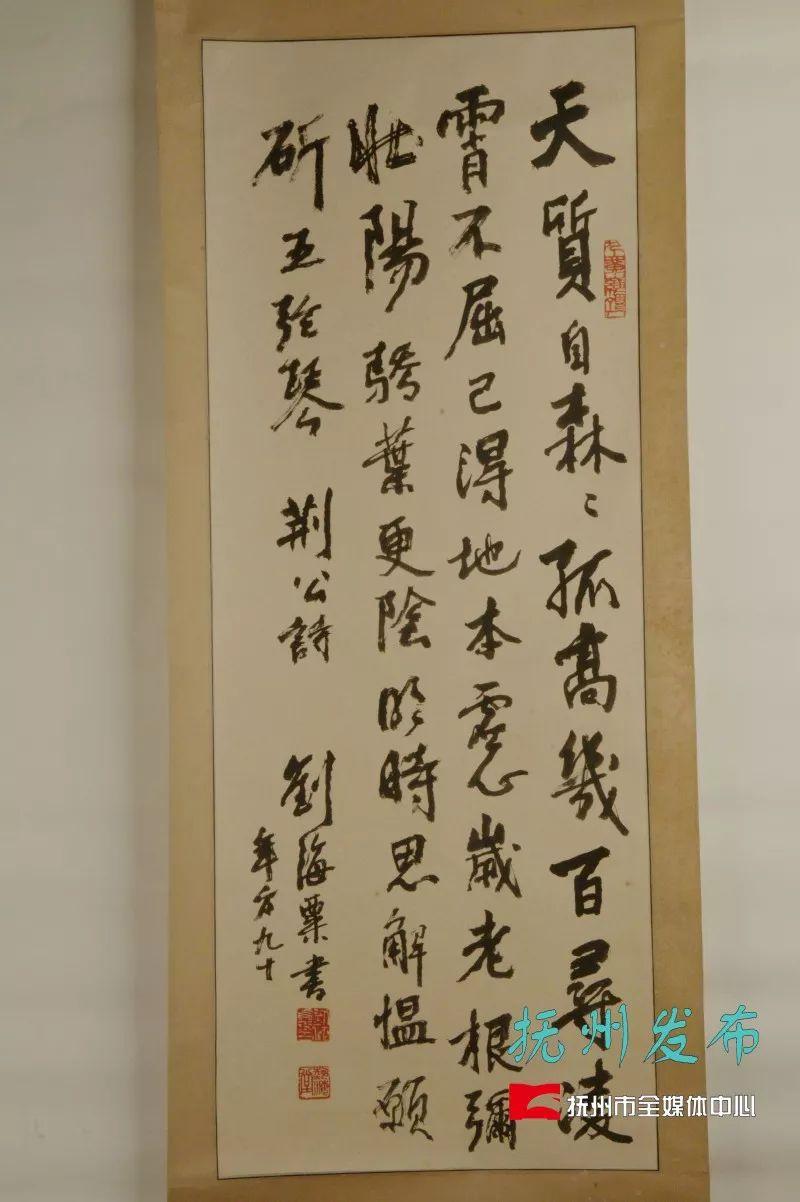 天質自森〻孤高幾百尋凌
霄不屈己得地本虛心歲老根彌
壯陽驕葉更陰明時思解慍願
斫五弦琴 荆公詩 劉海粟書
年方九十
抚州发布
抚州市全媒体中心